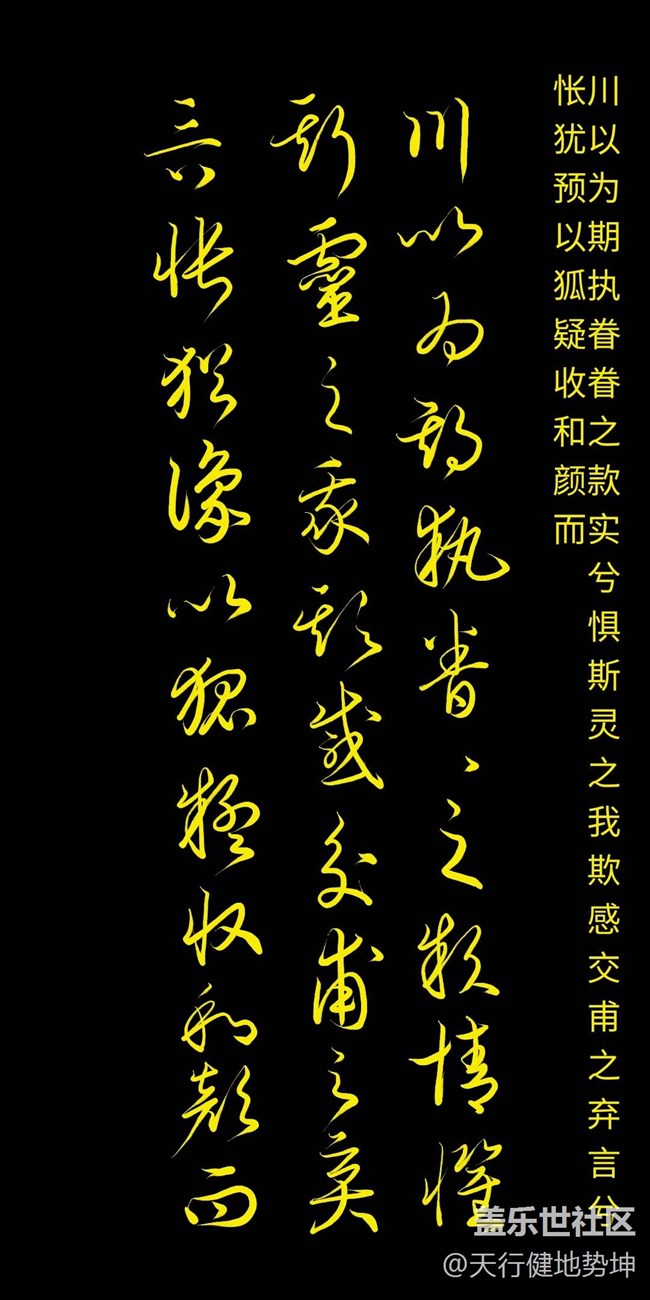 川以为期执眷眷之款实兮惧斯灵之我欺感交甫之弃言兮
怅犹预以狐疑收和颜而
川以為期執眷々之款情懼
斯靈之我欺感交甫之棄
言悵猶豫以狐疑收和顏而
盖乐世社区
@天行健地势坤